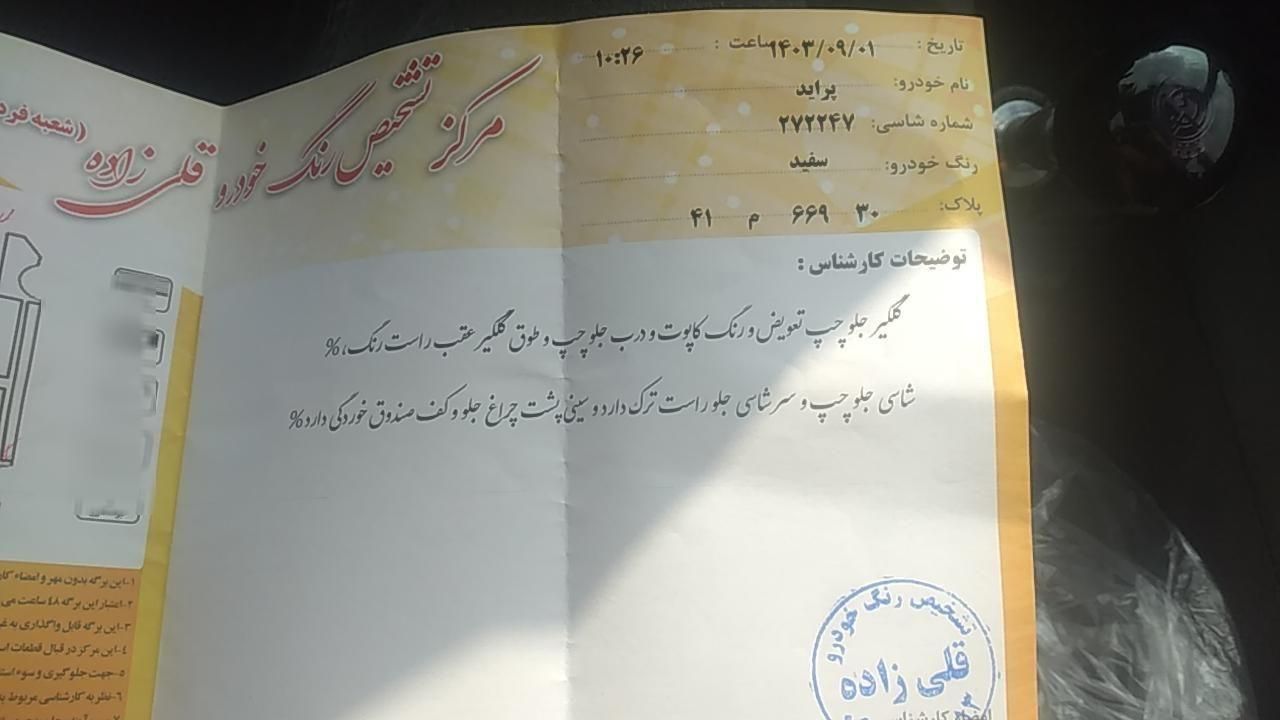 تاریخ : ۱۴۰۳/۰۹/۰۱ ساعت : ۱۰:۲۶
نام خودرو: پراید
شماره شاسی: ۲۷۲۲۴۷
رنگ خودرو: سفید
پلاک: ۳۰ ۶۶۹ م ۴۱
مرکز تشخیص رنگ خودرو قلی زاده (شعبه
توضیحات کارشناس :
گلگیر جلو چپ تعویض و رنگ کاپوت و درب جلو چپ و طوق گلگیر عقب راست رنگ، %
شاسی جلو چپ و سرشاسی جلو راست ترک دارد و سینی پشت چراغ جلو و کف صندوق خوردگی دارد %
تشخیص رنگ خودرو
قلی زاده
امضاء کارشناس
۱-این برگه بدون مهر و امضاء
۲-اعتبار این برگه ۴۸ ساعت می
۳-این برگه قابل واگذاری به
۴-این مرکز در قبال قطعات
۵-جهت جلوگیری و سوء
۶-نظریه کارشناسی مربوط